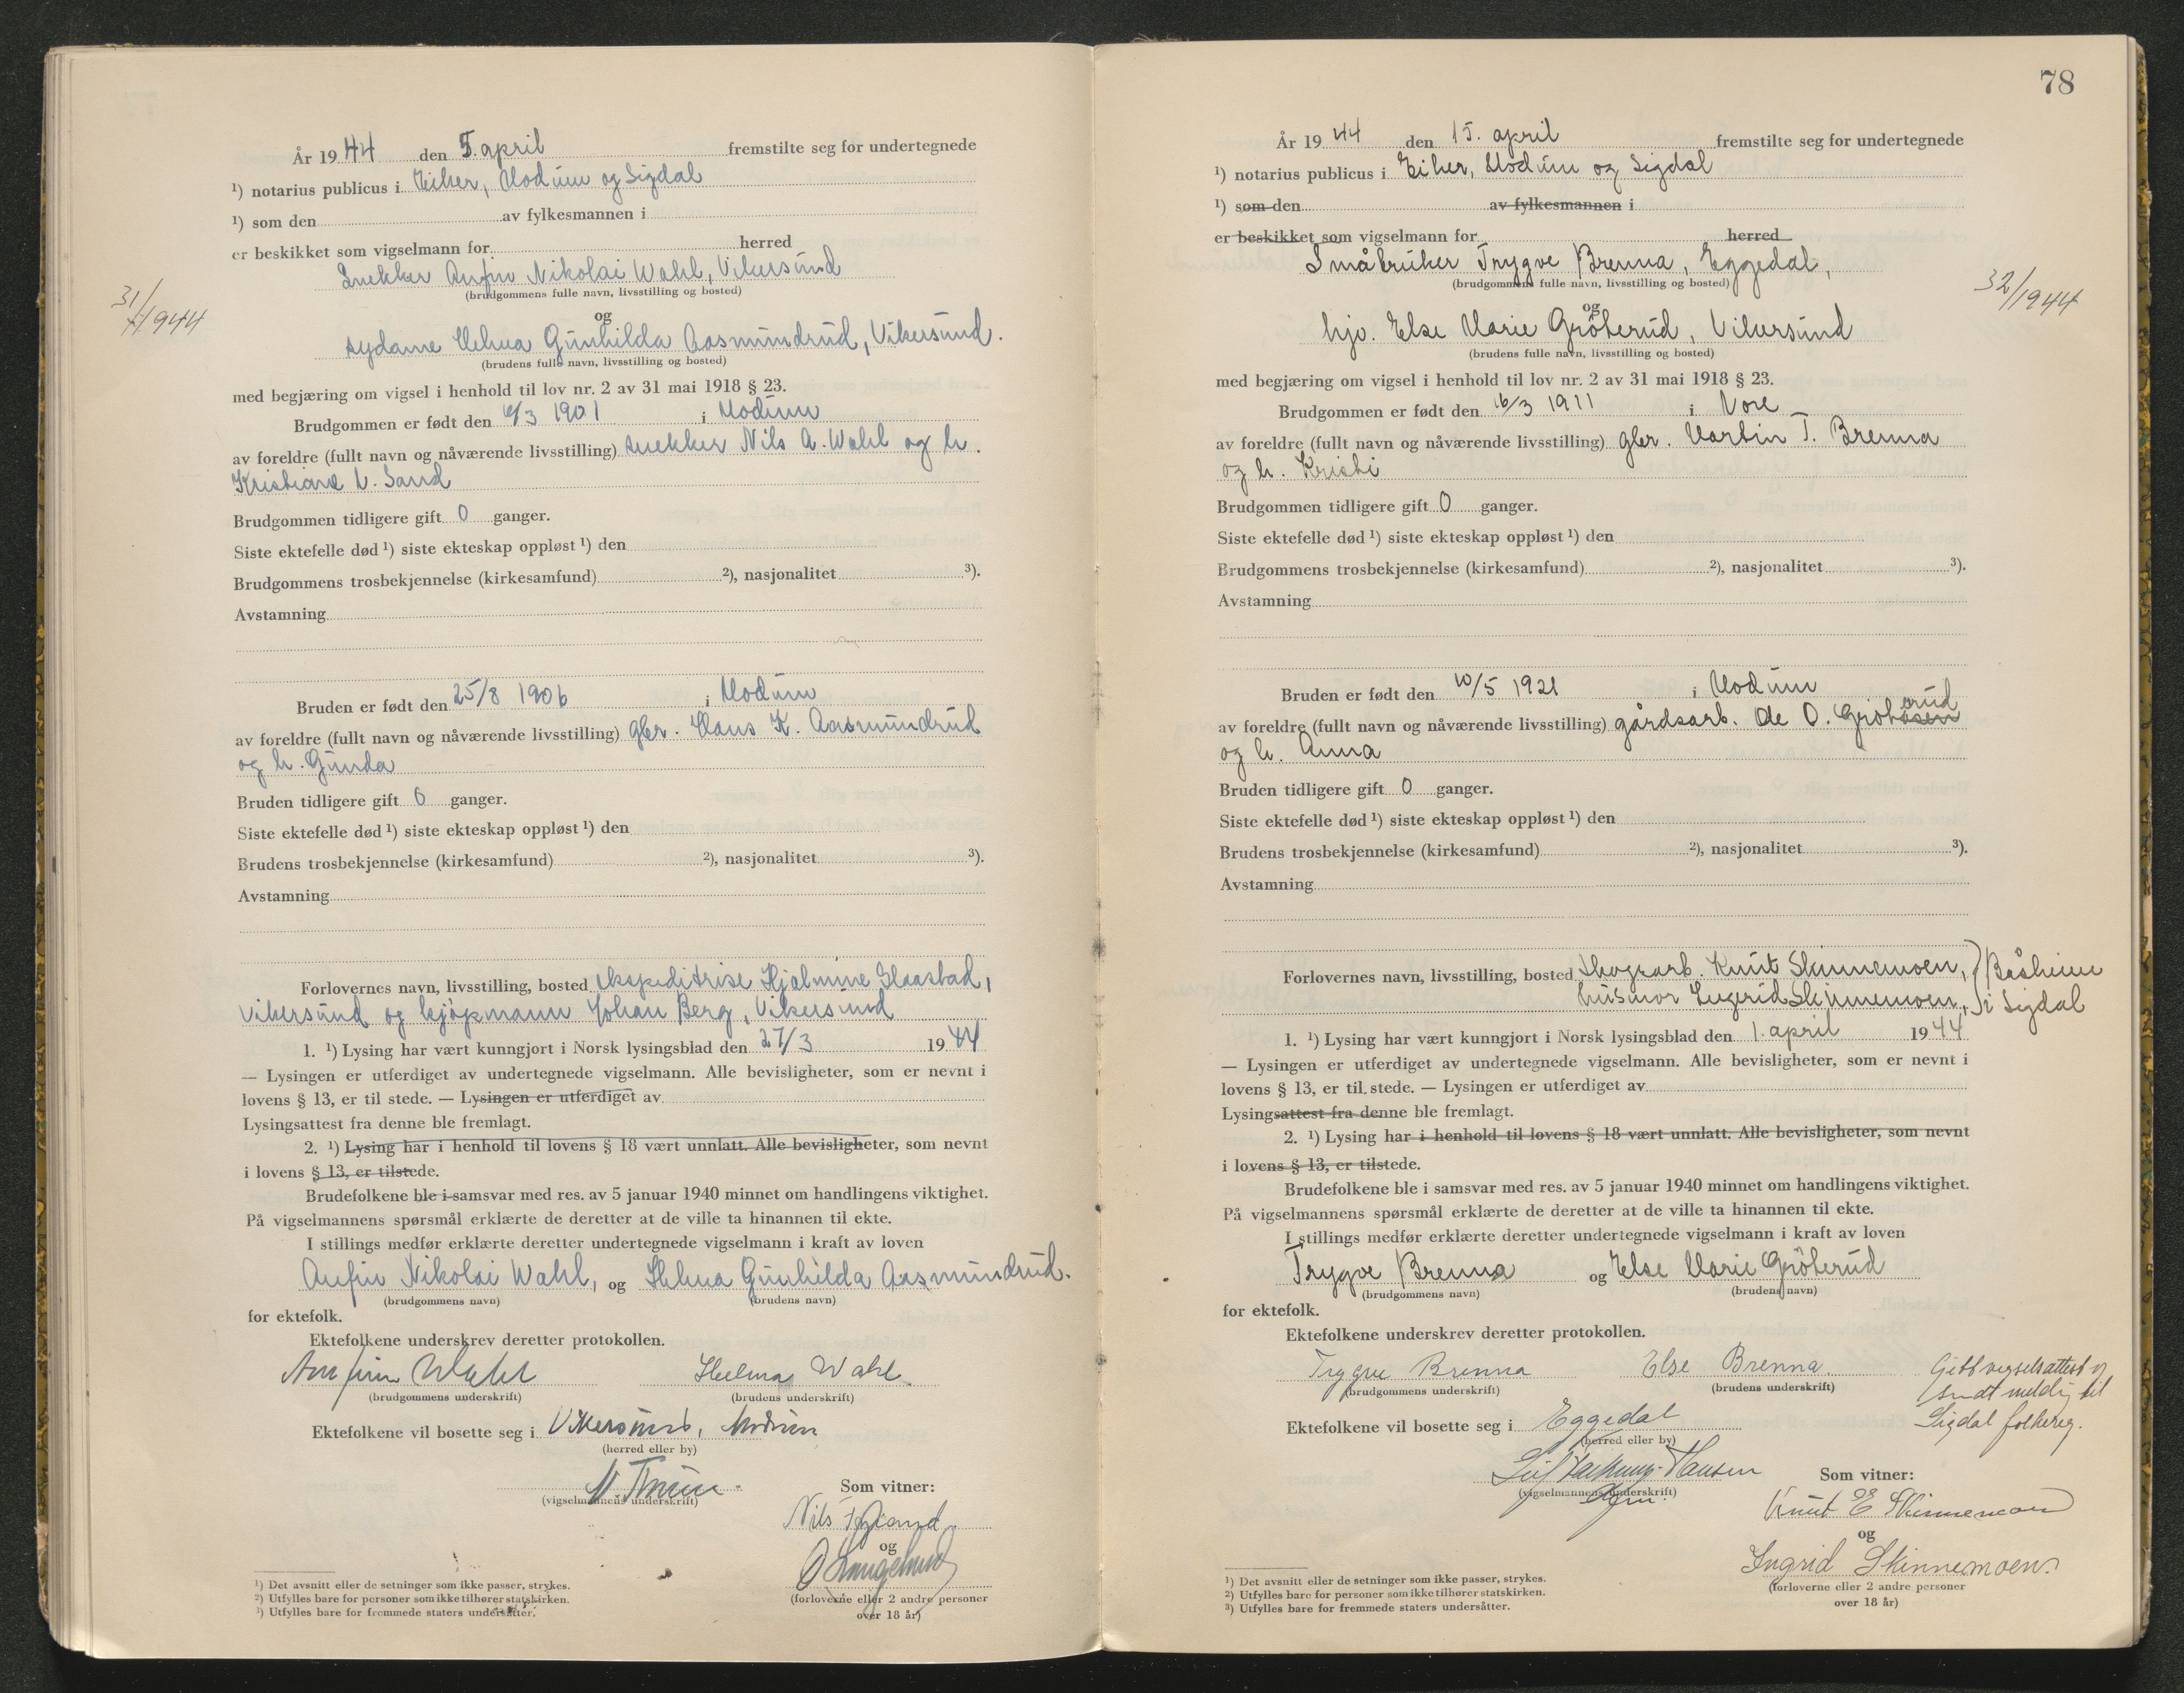 År 19 44 den 5. april fremstilte seg for undertegnede
¹) notarius publicus i Eiker, Modum og Sigdal
¹) som den av fylkesmannen i
er beskikket som vigselmann for herred
Snekker Anfin Nikolai Wahl, Vikersund
(brudgommens fulle navn, livsstilling og bosted)
og
31/1944
sydame Helma Gunhilda Aasmundrud, Vikersund.
(brudens fulle navn, livsstilling og bosted)
med begjæring om vigsel i henhold til lov nr. 2 av 31 mai 1918 § 23.
Brudgommen er født den 6/3 1901 i Modum
av foreldre (fullt navn og nåværende livsstilling) snekker Nils A. Wahl og h.
Kristiane V. Sand
Brudgommen tidligere gift 0 ganger.
Siste ektefelle død ¹) siste ekteskap oppløst ¹) den
Brudgommens trosbekjennelse (kirkesamfund) ²), nasjonalitet ³).
Avstamning
Bruden er født den 25/8 1906 i Modum
av foreldre (fullt navn og nåværende livsstilling) gbr. Hans K. Aasmundrud
og h. Gunda
Bruden tidligere gift 0 ganger.
Siste ektefelle død ¹) siste ekteskap oppløst ¹) den
Brudens trosbekjennelse (kirkesamfund) ²), nasjonalitet ³).
Avstamning
Forlovernes navn, livsstilling, bosted ekspeditrise Hjalmine Glaastad,
Vikersund og kjøpmann Johan Berg, Vikersund
1. ¹) Lysing har vært kunngjort i Norsk lysingsblad den 27/3 19 44
— Lysingen er utferdiget av undertegnede vigselmann. Alle bevisligheter, som er nevnt i
lovens § 13, er til stede. — Lysingen er utferdiget av
Lysingsattest fra denne ble fremlagt.
2. ¹) Lysing har i henhold til lovens § 18 vært unnlatt. Alle bevisligheter, som nevnt
i lovens § 13, er tilstede.
Brudefolkene ble i samsvar med res. av 5 januar 1940 minnet om handlingens viktighet.
På vigselmannens spørsmål erklærte de deretter at de ville ta hinannen til ekte.
I stillings medfør erklærte deretter undertegnede vigselmann i kraft av loven
Anfin Nikolai Wahl, og Helma Gunhilda Aasmundrud.
(brudgommens navn) (brudens navn)
for ektefolk.
Ektefolkene underskrev deretter protokollen.
Anfinn Wahl Helma Wahl.
(brudgommens underskrift) (brudens underskrift)
Ektefolkene vil bosette seg i Vikersund, Modum
(herred eller by)
(vigselmannens underskrift)
Som vitner:
Nils
og
(forloverne eller 2 andre personer
over 18 år)
¹) Det avsnitt eller de setninger som ikke passer, strykes.
²) Utfylles bare for personer som ikke tilhører statskirken.
³) Utfylles bare for fremmede staters undersåtter.
78
År 19 44 den 15. april fremstilte seg for undertegnede
¹) notarius publicus i Eiker, Modum og Sigdal
¹) som den av fylkesmannen i
er beskikket som vigselmann for herred
Småbruker Trygve Brenna, Eggedal,
(brudgommens fulle navn, livsstilling og bosted)
og
32/1944
hjv. Else Marie Gröterud, Vikersund
(brudens fulle navn, livsstilling og bosted)
med begjæring om vigsel i henhold til lov nr. 2 av 31 mai 1918 § 23.
Brudgommen er født den 16/3 1911 i Nore
av foreldre (fullt navn og nåværende livsstilling) gbr. Martin T. Brenna
og h. Kristi
Brudgommen tidligere gift 0 ganger.
Siste ektefelle død ¹) siste ekteskap oppløst ¹) den
Brudgommens trosbekjennelse (kirkesamfund) ²), nasjonalitet ³).
Avstamning
Bruden er født den 10/5 1921 i Modum
av foreldre (fullt navn og nåværende livsstilling) gårdsarb. Ole O. Gröterud
og h. Anna
Bruden tidligere gift 0 ganger.
Siste ektefelle død ¹) siste ekteskap oppløst ¹) den
Brudens trosbekjennelse (kirkesamfund) ²), nasjonalitet ³).
Avstamning
Forlovernes navn, livsstilling, bosted Skogsarb. Knut Skinnemoen, } Båsheim
husmor Ingerid Skinnemoen, i Sigdal
1. ¹) Lysing har vært kunngjort i Norsk lysingsblad den 1. april 19 44
— Lysingen er utferdiget av undertegnede vigselmann. Alle bevisligheter, som er nevnt i
lovens § 13, er til stede. — Lysingen er utferdiget av
Lysingsattest fra denne ble fremlagt.
2. ¹) Lysing har i henhold til lovens § 18 vært unnlatt. Alle bevisligheter, som nevnt
i lovens § 13, er tilstede.
Brudefolkene ble i samsvar med res. av 5 januar 1940 minnet om handlingens viktighet.
På vigselmannens spørsmål erklærte de deretter at de ville ta hinannen til ekte.
I stillings medfør erklærte deretter undertegnede vigselmann i kraft av loven
Trygve Brenna og Else Marie Gröterud
(brudgommens navn) (brudens navn)
for ektefolk.
Ektefolkene underskrev deretter protokollen.
Trygve Brenna Else Brenna.
(brudgommens underskrift) (brudens underskrift)
Gitt vigselsattest og
sendt melding til
Sigdal folkereg.
Ektefolkene vil bosette seg i Eggedal
(herred eller by)
Leif Hansen
(vigselmannens underskrift)
Som vitner:
Knut E Skinnemoen
og
Ingrid Skinnemoen.
(forloverne eller 2 andre personer
over 18 år)
¹) Det avsnitt eller de setninger som ikke passer, strykes.
²) Utfylles bare for personer som ikke tilhører statskirken.
³) Utfylles bare for fremmede staters undersåtter.